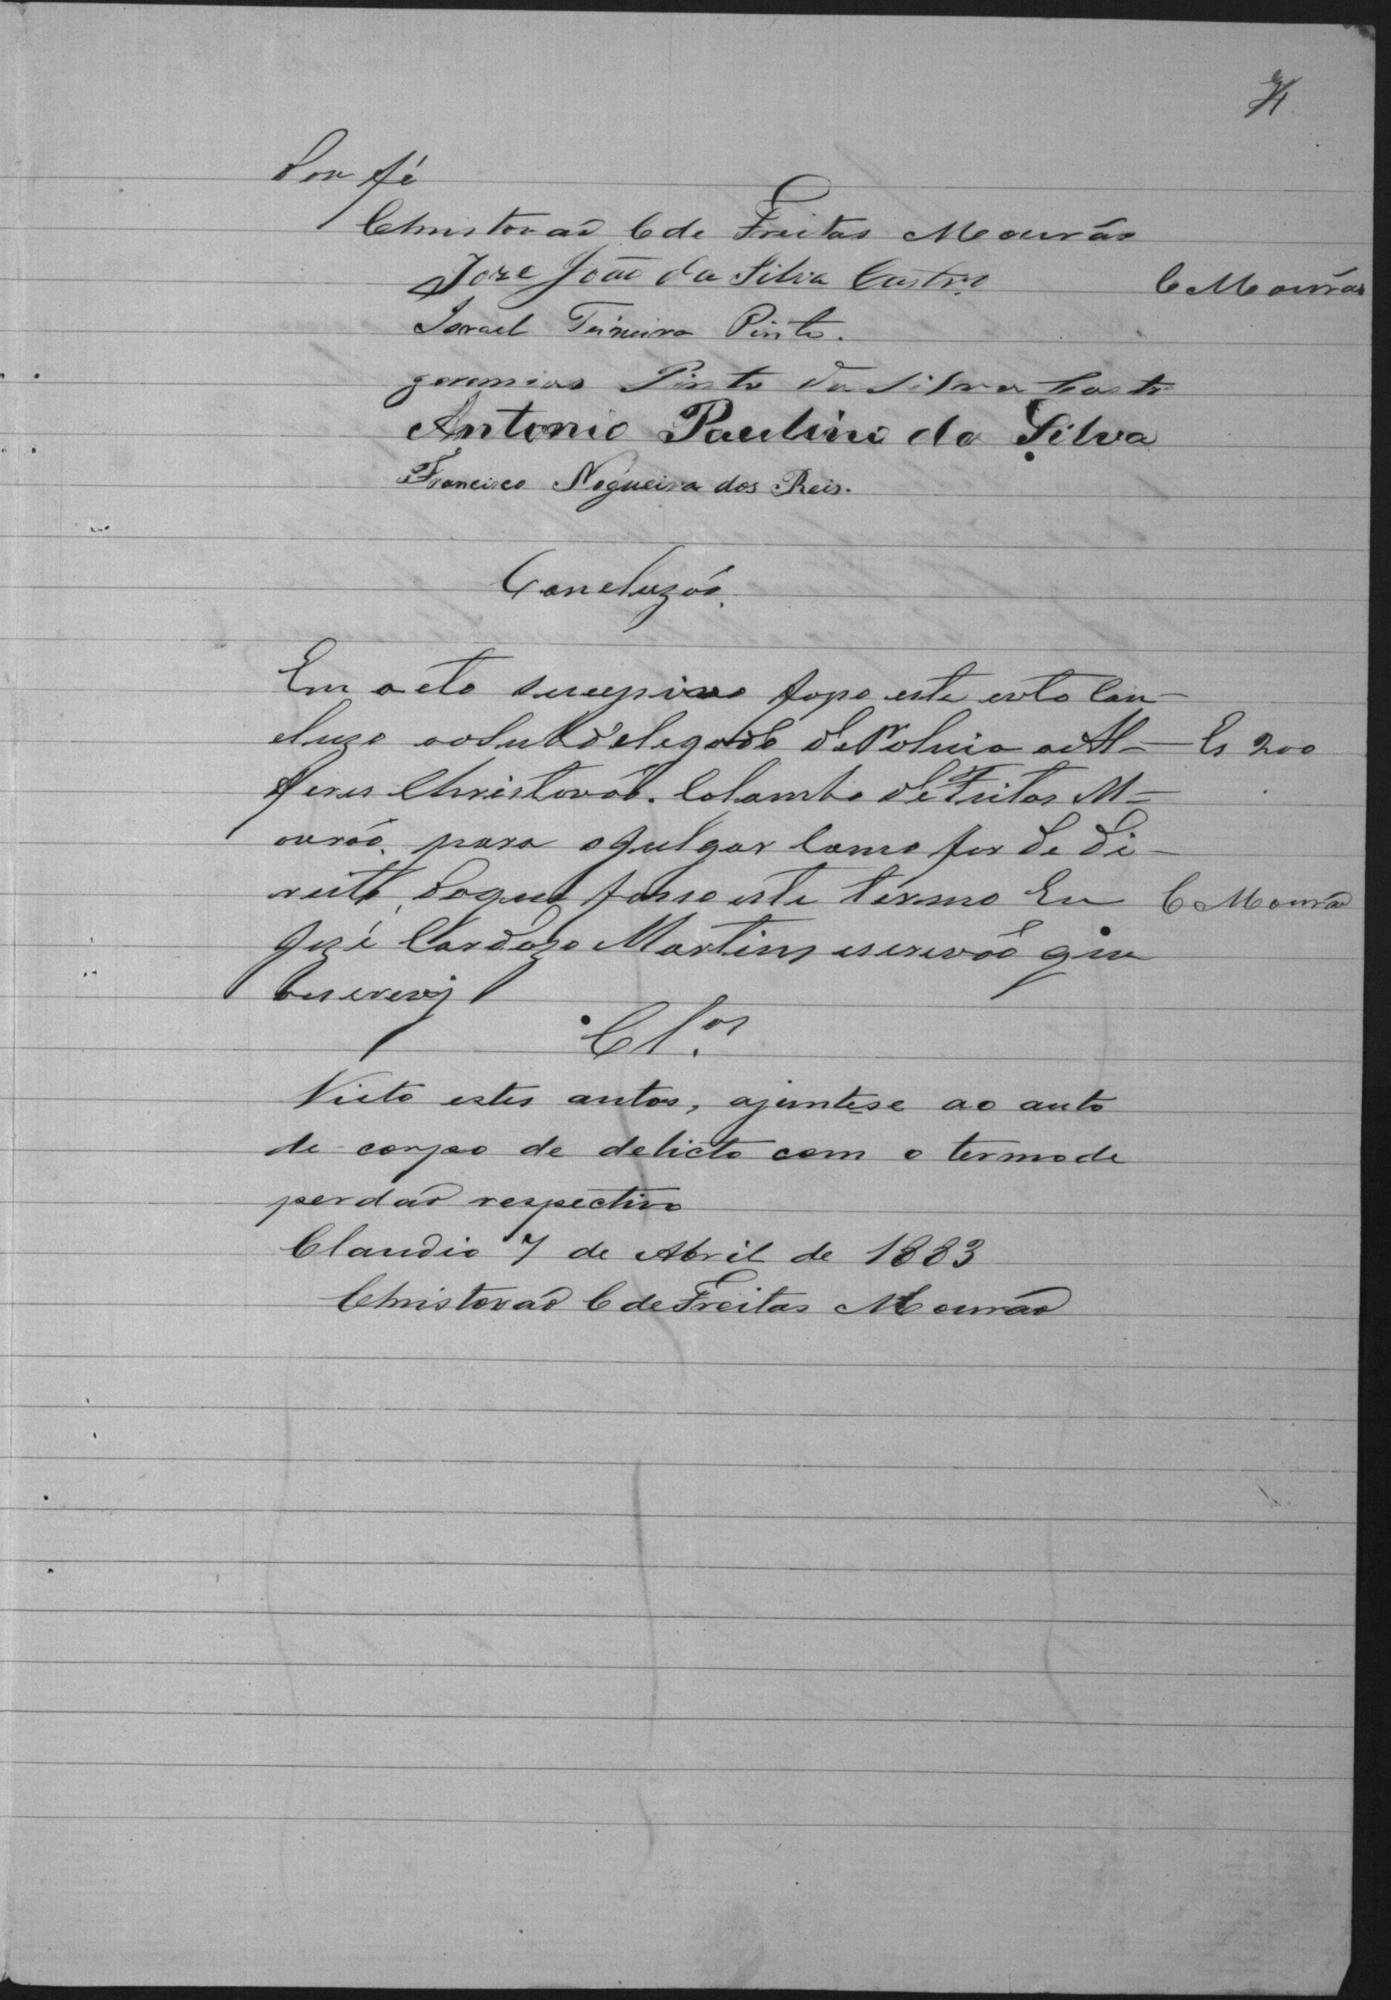 Dou fé
Christovaõ C de Freitas Mourão
Joze João da Silva Castro
C Mourão
Israel Teixeira Pinto.
geremias Pinto da Silva Castro
Antonio Paulino da Silva
Francisco Nogueira dos Reis.
Concluzão.
Em acto sucepivo faço este auto con-
cluzo ao Subdelegado de Policia o Al-
Cs 200
feres Christovão. Colombo de Freitas M-
ourão, para o julgar como for de di-
reito, do que fasso este termo Eu
C Mourão
Jozé Cardozo Martins escrivão que
o escrevi
Cl.os
Visto estes autos, ajuntese ao auto
de corpo de delicto com o termo de
perdaõ respectivo
Claudio 7 de Abril de 1883
Christovaõ C de Freitas Mouraõ